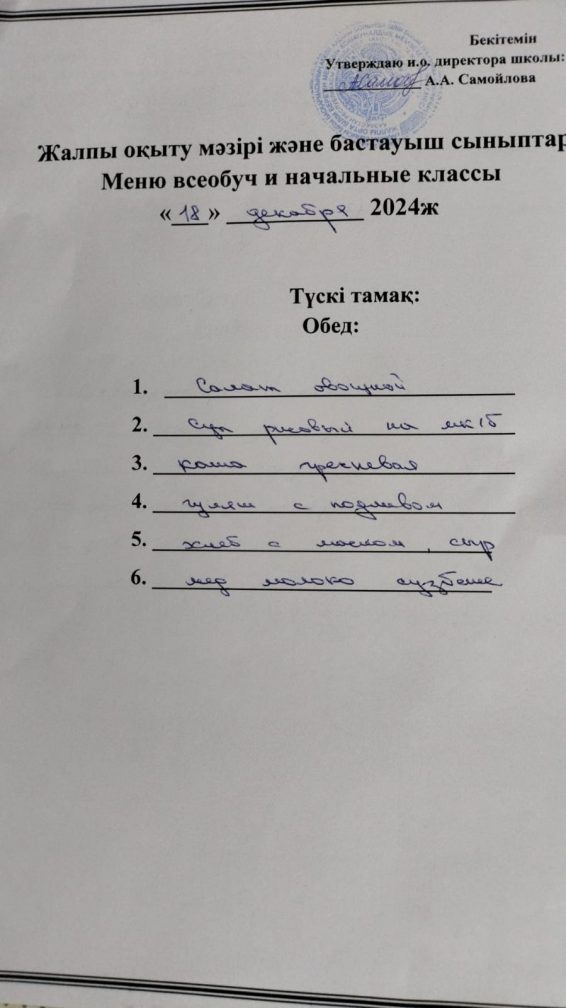 Бекітемін
Утверждаю и.о. директора школы:
А.А. Самойлова
Жалпы оқыту мәзірі және бастауыш сыныптар
Меню всеобуч и начальные классы
«18» декабря 2024ж
Түскі тамақ:
Обед:
1. Салат овощной
2. Суп рисовый на мк/б
3. каша гречневая
4. гуляш с подливом
5. хлеб с маслом, сыр
6. мед молоко сузбеше